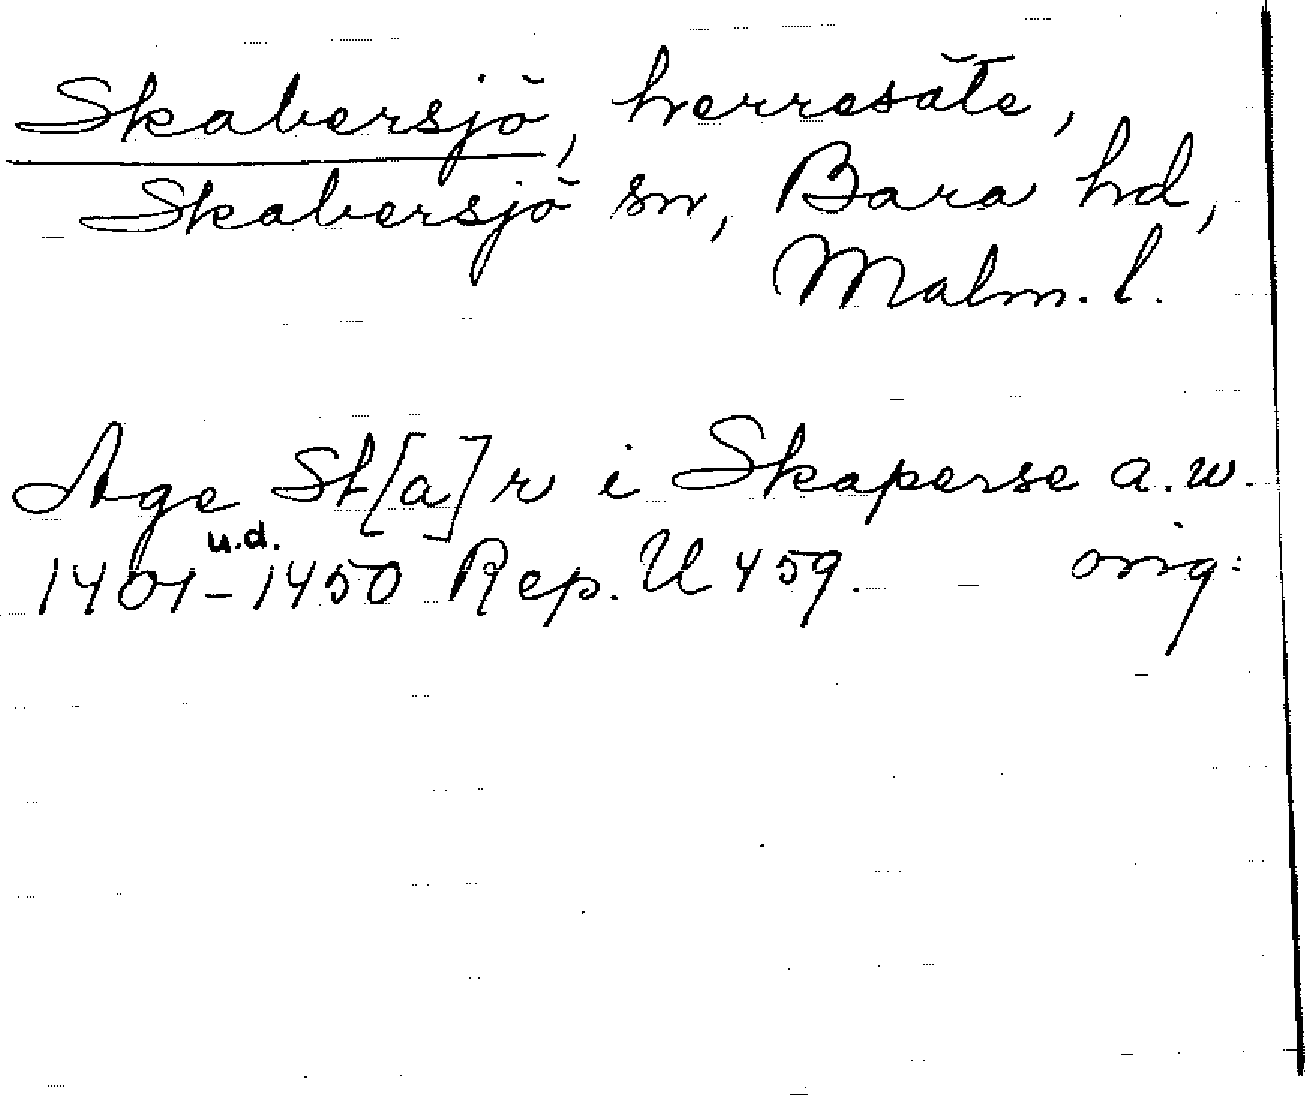 Skabersjö, herresäte,
Skabersjö sn, Bara hd,
Malm. l.
Age St[a]r i Skaperse a.w.
u.d.
1401-1450 Rep. U 459. orig: